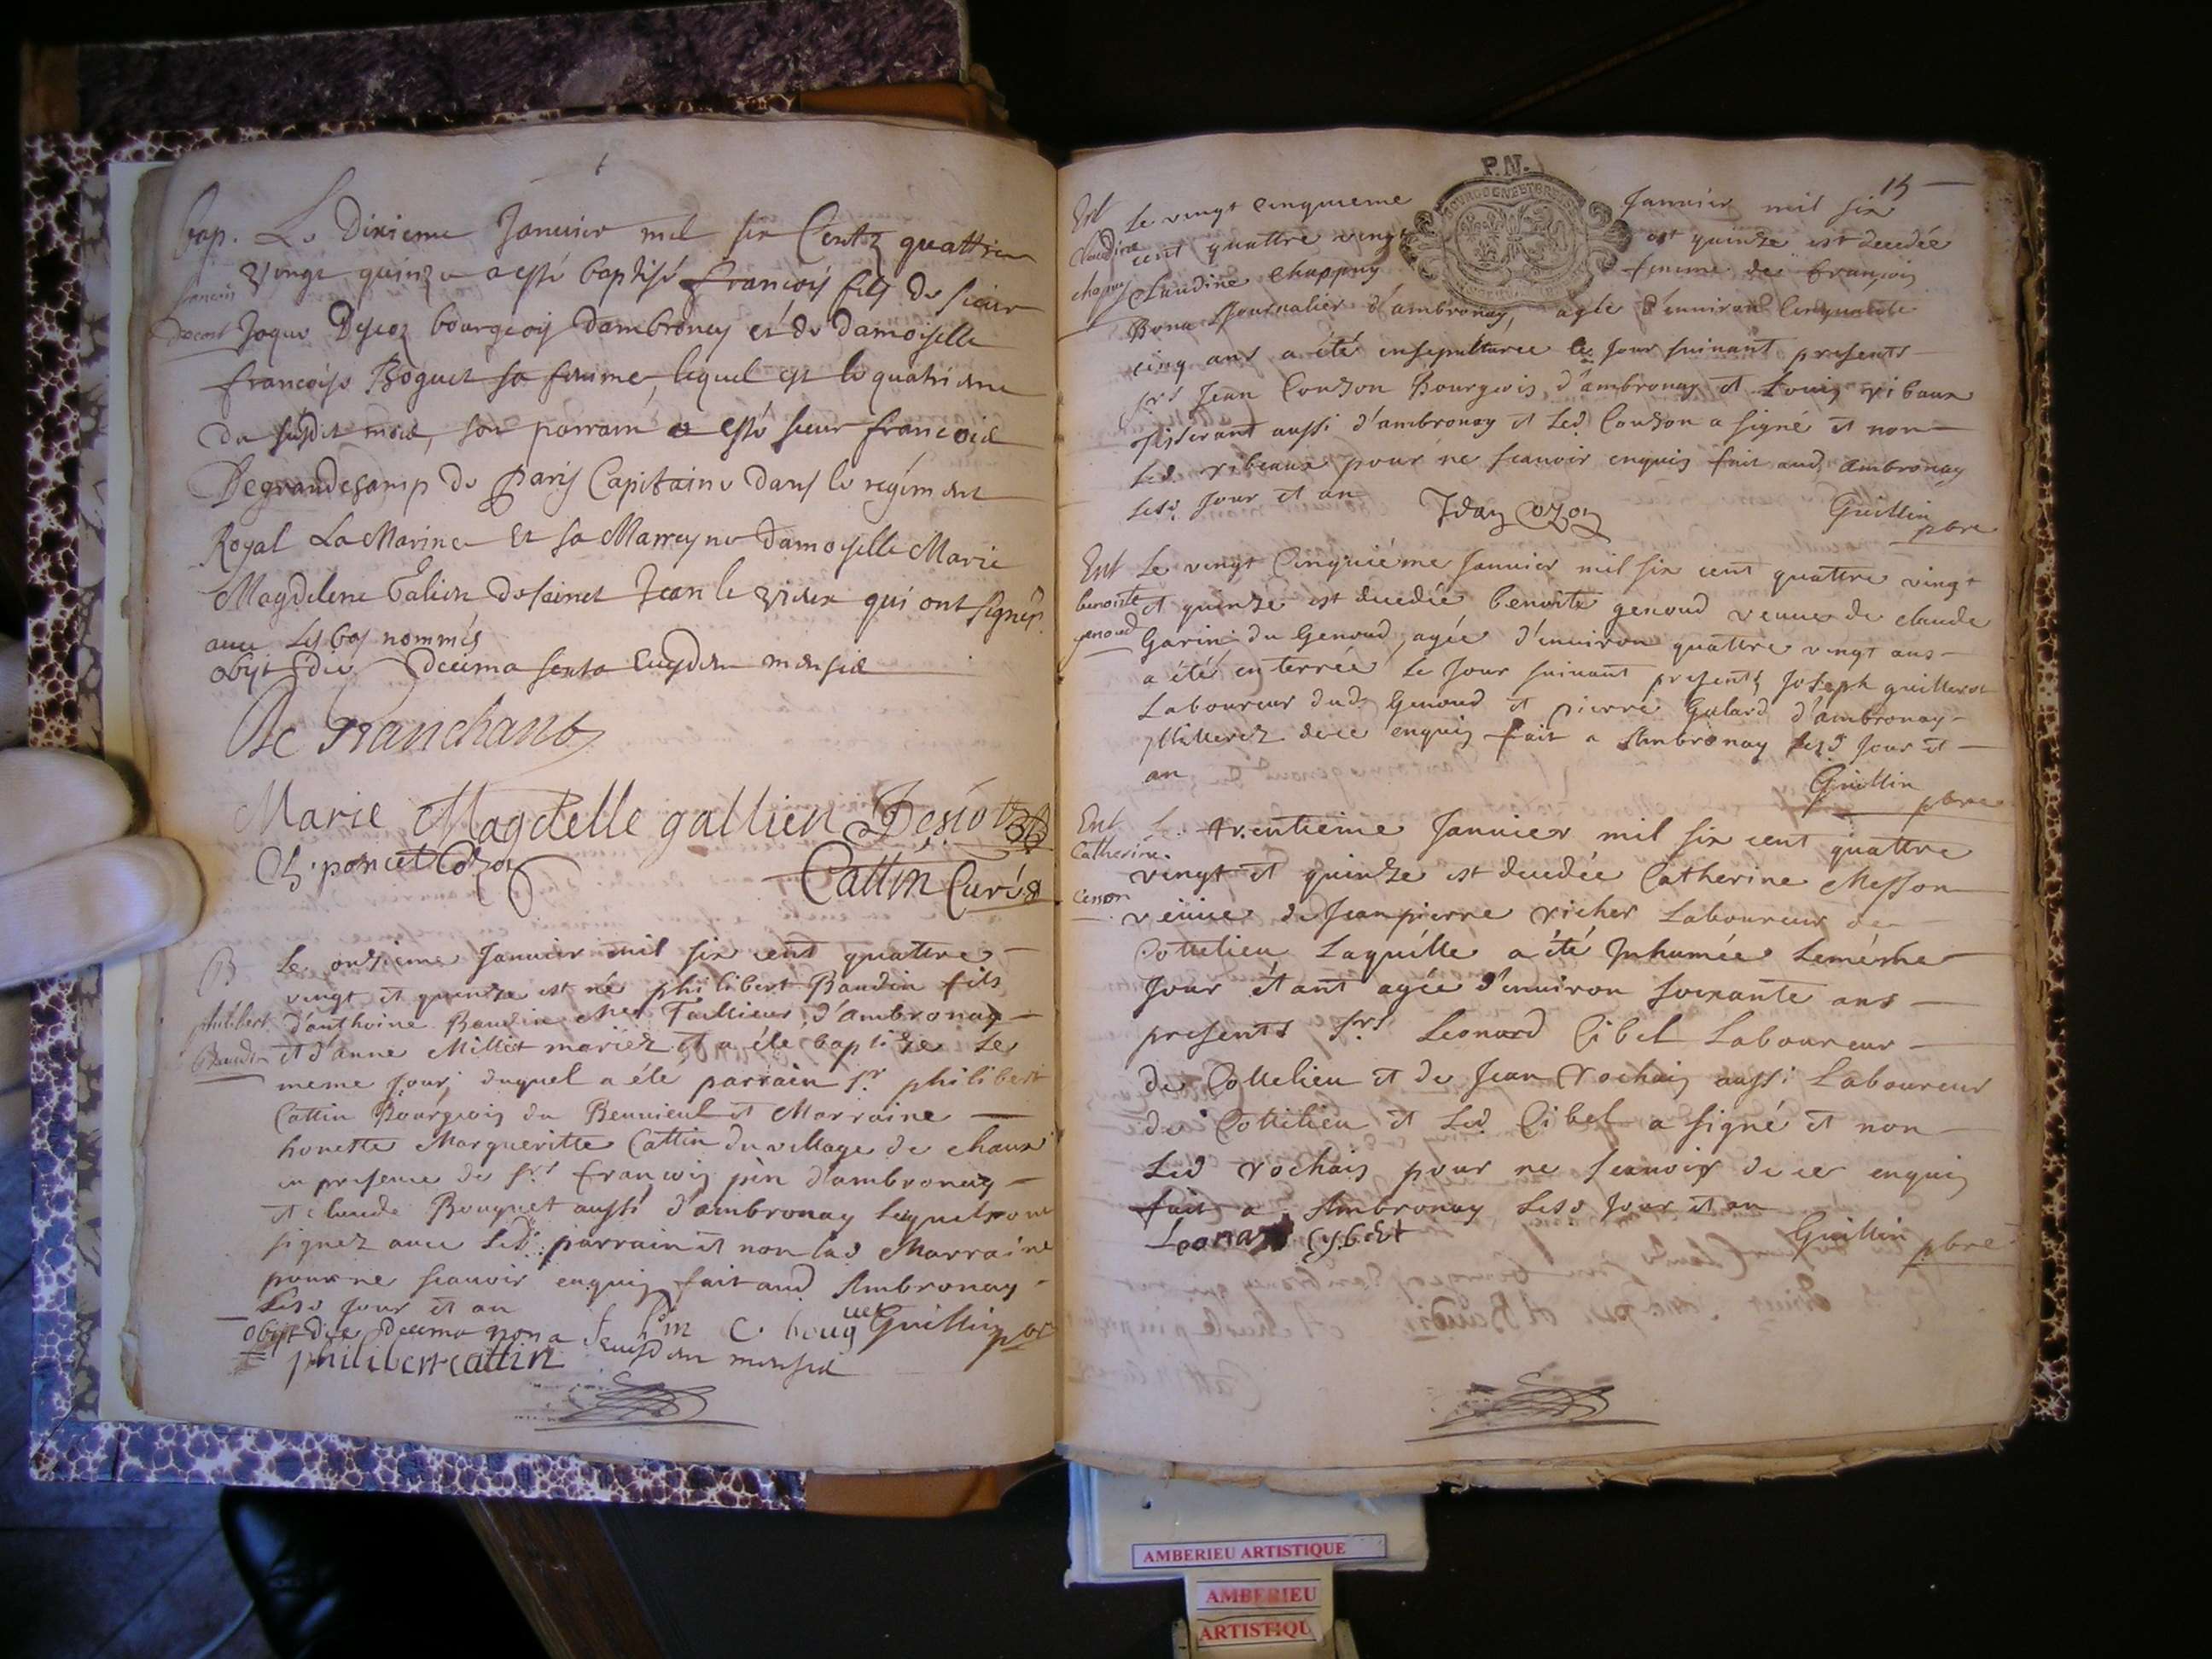 bap. Le Dixieme Janvier mil six Centz quattre
vingt quinze a esté baptisé françois fils de sieur
françois
Jaque Descoz bourgeois dambronay et de damoiselle
françoise Boguet sa femme, lequel est le quatrieme
du susdit mois, son parrain a esté sieur françois
Degrandchamp de Paris Capitaine dans le regiment
Royal La Marine Et sa Marreyne damoiselle Marie
Magdelene Galien de sainct Jean le vieux qui ont signés
avec les bas nommés
obijt die decima sexta eiusdem mensis
Marie Magdelle gallien
poncet Cozon
Cattin Curé
B Le onzieme Janvier mil six cent quattre
vingt et quinze est né philibert Baudin fils
philibert d'anthoine Baudin Me Tailleur d'ambronay
Baudin et d'anne Milliet mariez et a été baptizé Le
meme jour, duquel a été parrain Sr philibert
Cattin Bourgeois du et Marraine
honeste Margueritte Cattin du village de chaux
en presence de Srs françois pin d'ambronay
et claude Bouquet aussi d'ambronay lequels ont
signez avec led. parrain et non lad Marraine
pour ne scavoir enquis fait aud Ambronay
lesd jour et an
f pin C. bouquet Guillin pbre
obijt die decima nona eiusdem mensis
philibert cattin
P.N.
BOURGOGNE ET BRES
15
Ent Le vingt cinquieme Janvier mil six
Claudine cent quattre vingt et quinze est decedée
chapuy Claudine Chappuy femme de françois
Bona Journalier d'ambronay, agée d'environ cinquante
cinq ans a été ensepulturee le jour suivant presents
Srs Jean Couzon Bourgeois d'ambronay et Louis ribaux
Tisserant aussi d'ambronay et Led Couzon a signé et non
Led. ribeaux pour ne scavoir enquis fait aud ambronay
Lesd. Jour et an
Guillin
pbre
Ent Le vingt Cinquiéme Janvier mil six cent quattre vingt
benoiste et quinze est decedée benoite genoud veuve de claude
genoud Garin du Genoud, agée d'environ quattre vingt ans
a été enterrée le Jour suivant presents Joseph guillerot
Laboureur dud Genoud et pierre Galard d'ambronay
illiterez de ce enquis fait a Ambronay lesd Jour et
an
Guillin
pbre
Ent Le trentieme Janvier mil six cent quattre
Catherine vingt et quinze est decedée Catherine Messon
veuve de Jean pierre richer Laboureur de
Cottelieu Laquelle a été Inhumée Leméme
Jour étant agée d'environ soixante ans
presents Srs Leonard Cibet Laboureur
de Cottelieu et de Jean rochais aussi Laboureur
de Cottelieu et Led Cibet a signé et non
Led rochais pour ne scavoir de ce enquis
fait a Ambronay Lesd Jour et an
Leonard Cybet
Guillin pbre
AMBERIEU ARTISTIQUE
AMBERIEU
ARTISTIQU